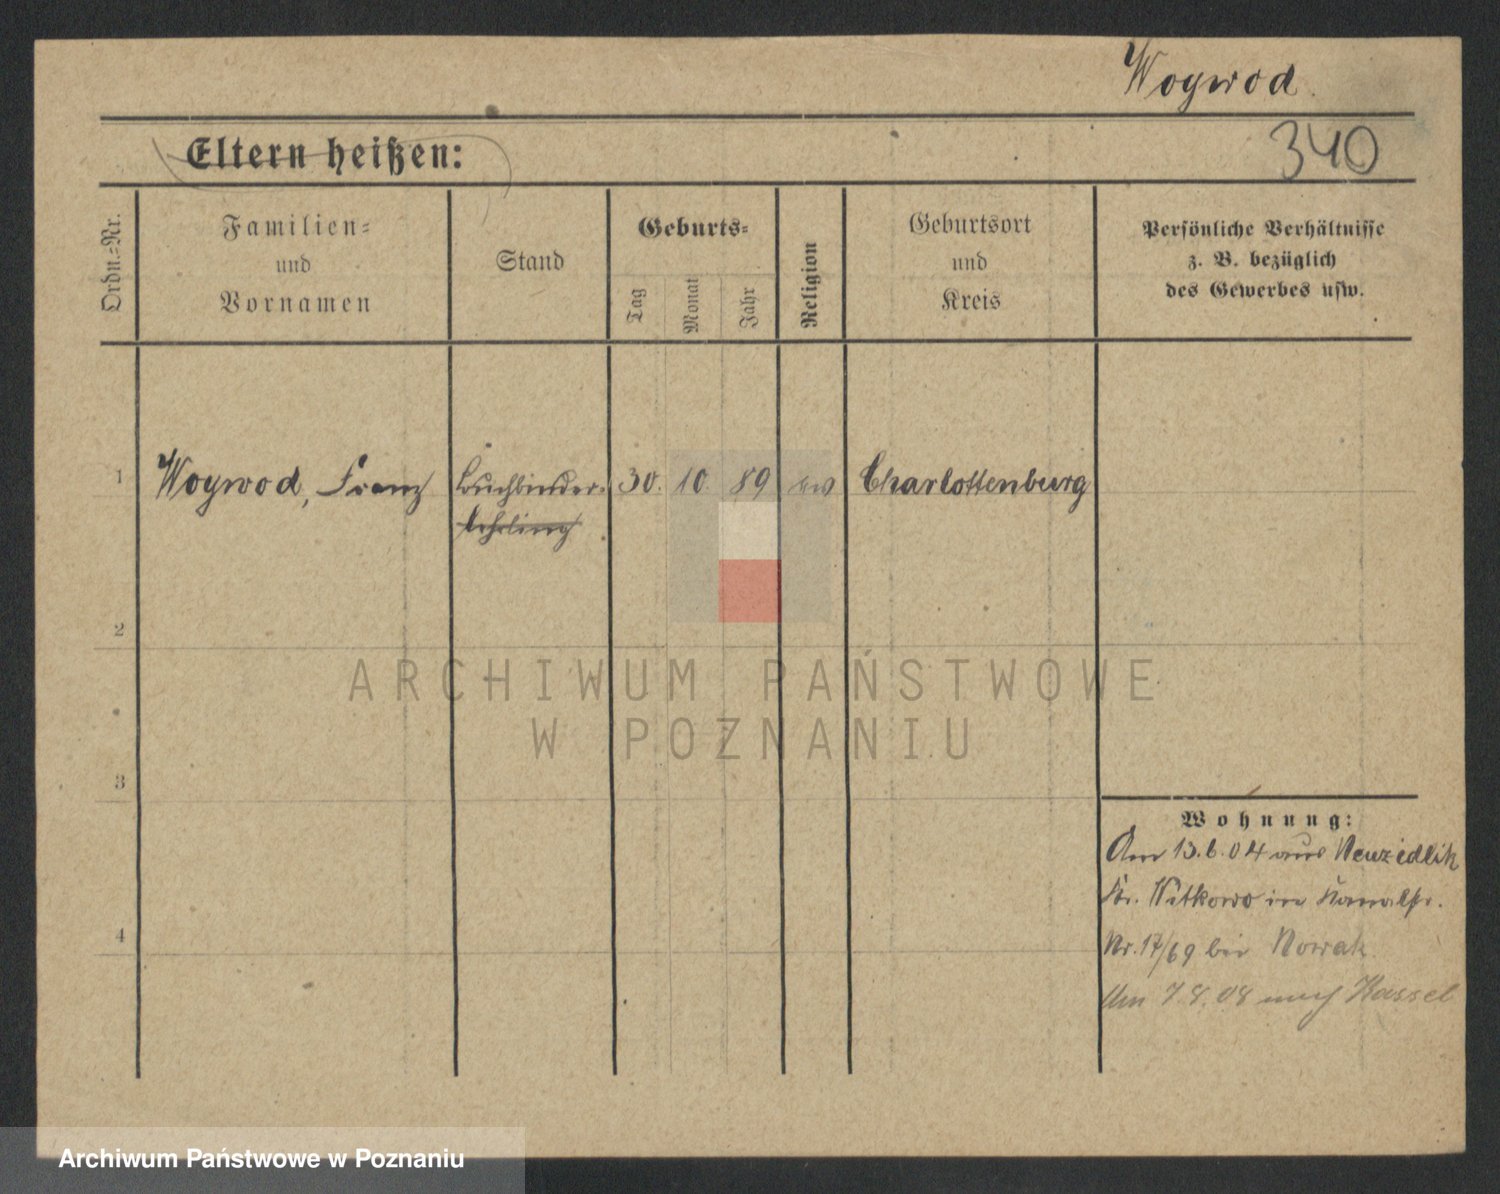 Wogwod.
340
Eltern heißen:
Ordn.-Nr.
Familien-
und
Vornamen
Stand
Geburts-
Tag
Monat
Jahr
Religion
Geburtsort
und
Kreis
Persönliche Verhältnisse
z. B. bezüglich
des Gewerbes usw.
1 Wogwod, Franz Buchbinder- 30. 10. 89 ev Charlottenburg
lehrling
2
3
4
Wohnung:
Am 13.6.04 aus Neuzedlitz
Kr. Witkowo in Kanalstr.
Nr. 17/69 bei Nowak
Am 7.8.08 nach Kassel
ARCHIWUM PAŃSTWOWE
W POZNANIU
Archiwum Państwowe w Poznaniu